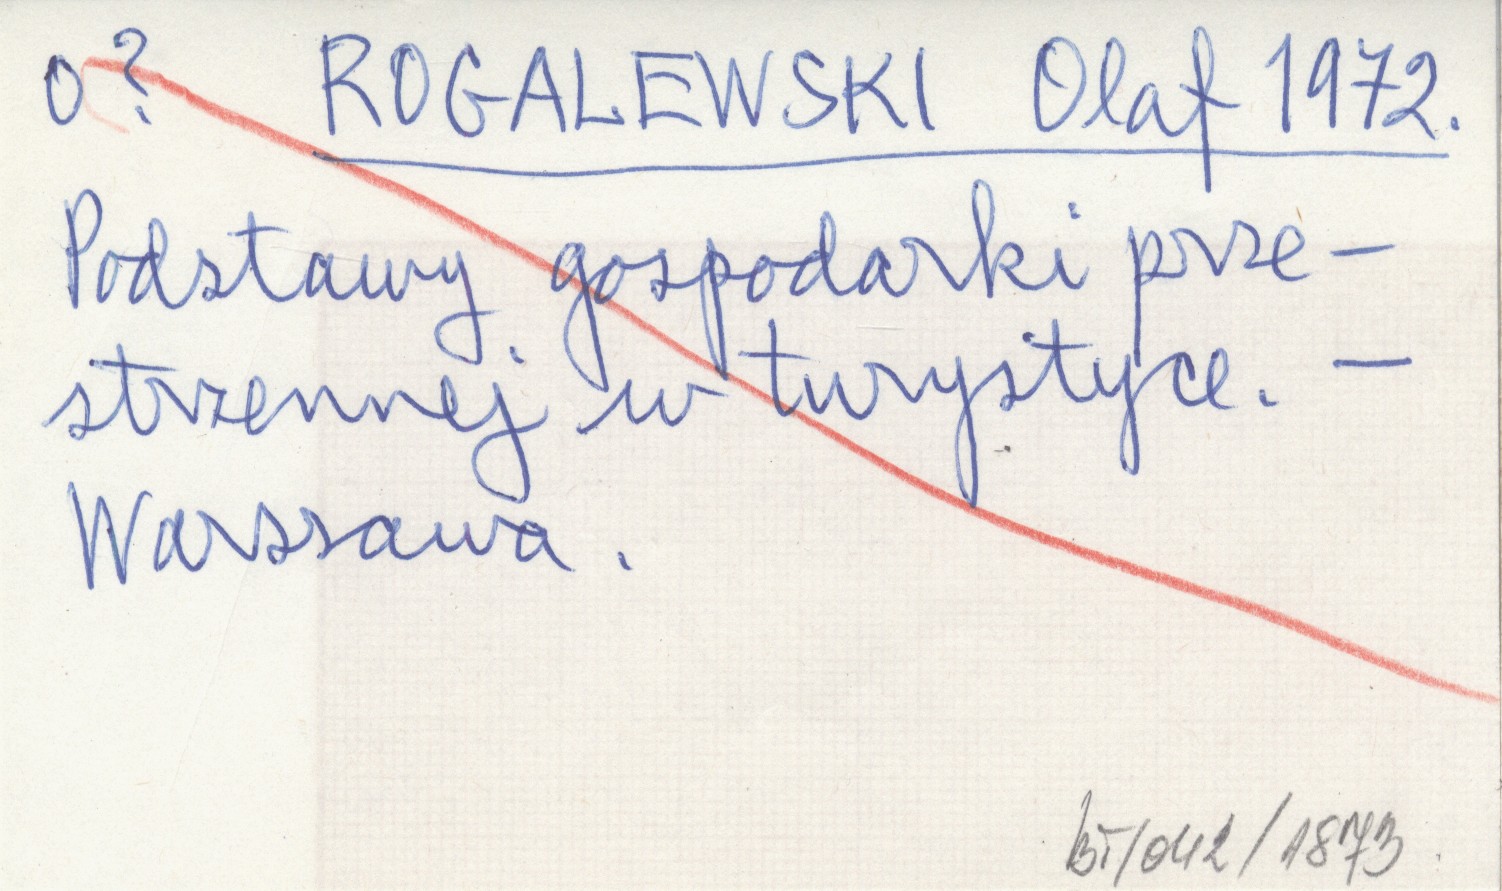 o? ROGALEWSKI Olaf 1972.
Podstawy gospodarki prze-
strzennej w turystyce. -
Warszawa.
BT/042/1873